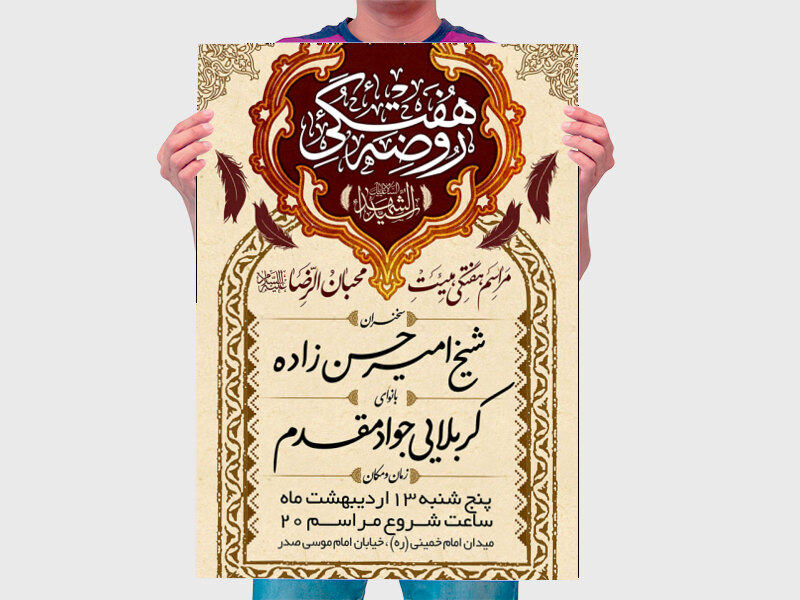 روضه هفتگی
سیدالشهدا علیه‌السلام
مراسم هفتگی هیئت محبان الرضا علیه السلام
سخنران
شیخ امیر حسن زاده
بانوای
کربلایی جواد مقدم
زمان و مکان
پنج شنبه ۱۳ اردیبهشت ماه
ساعت شروع مراسم ۲۰
میدان امام خمینی (ره) ، خیابان امام موسی صدر